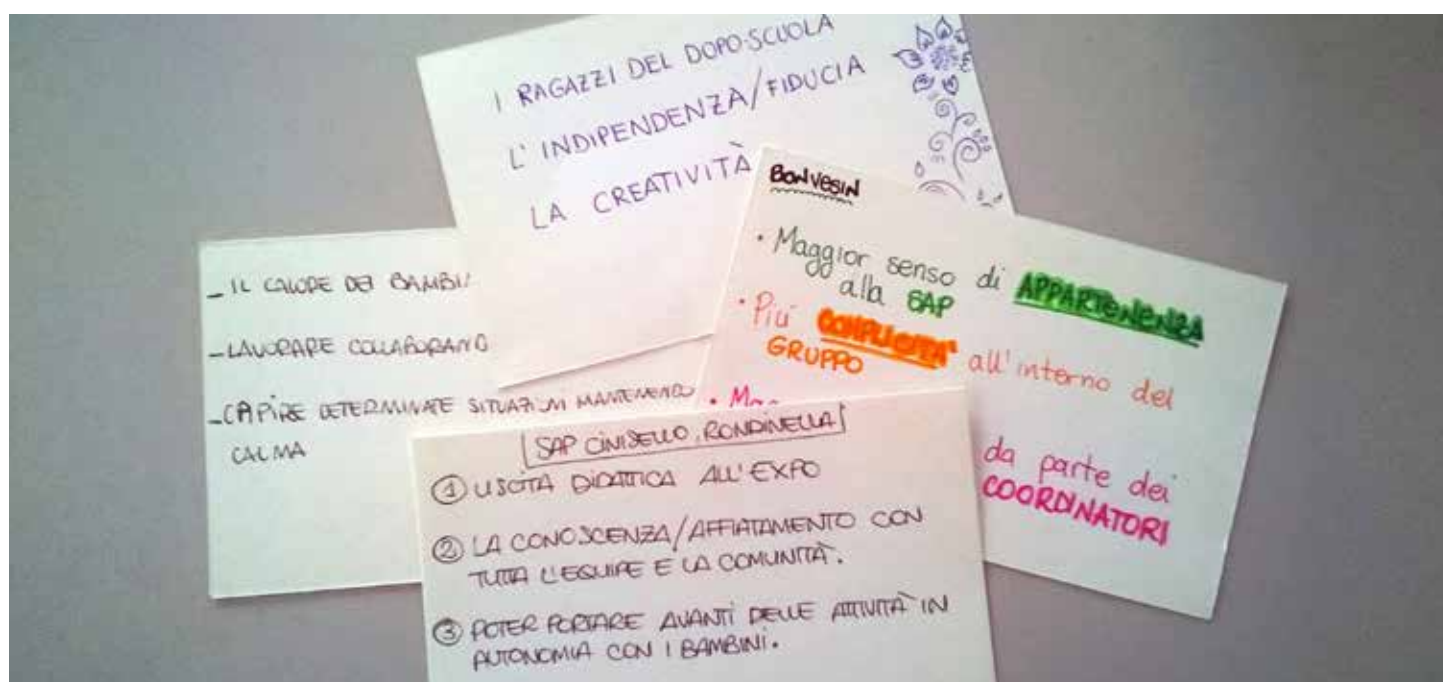 I RAGAZZI DEL DOPO-SCUOLA
L'INDIPENDENZA/FIDUCIA
LA CREATIVITÀ
_ IL CALORE DEI
_ LAVORARE
_ CAPIRE DETERMINATE SITUAZIONI MANTENENDO
CALMA
BONVESIN
• Maggior senso di APPARTENENZA
alla SAP
• Più COMPLICITA' all'interno del
GRUPPO
•
da parte dei
COORDINATORI
SAP CINISELLO, RONDINELLA
① USCITA DIDATTICA ALL'EXPO
② LA CONOSCENZA/AFFIATAMENTO CON
TUTTA L'EQUIPE E LA COMUNITÀ.
③ POTER PORTARE AVANTI DELLE ATTIVITÀ IN
AUTONOMIA CON I BAMBINI.